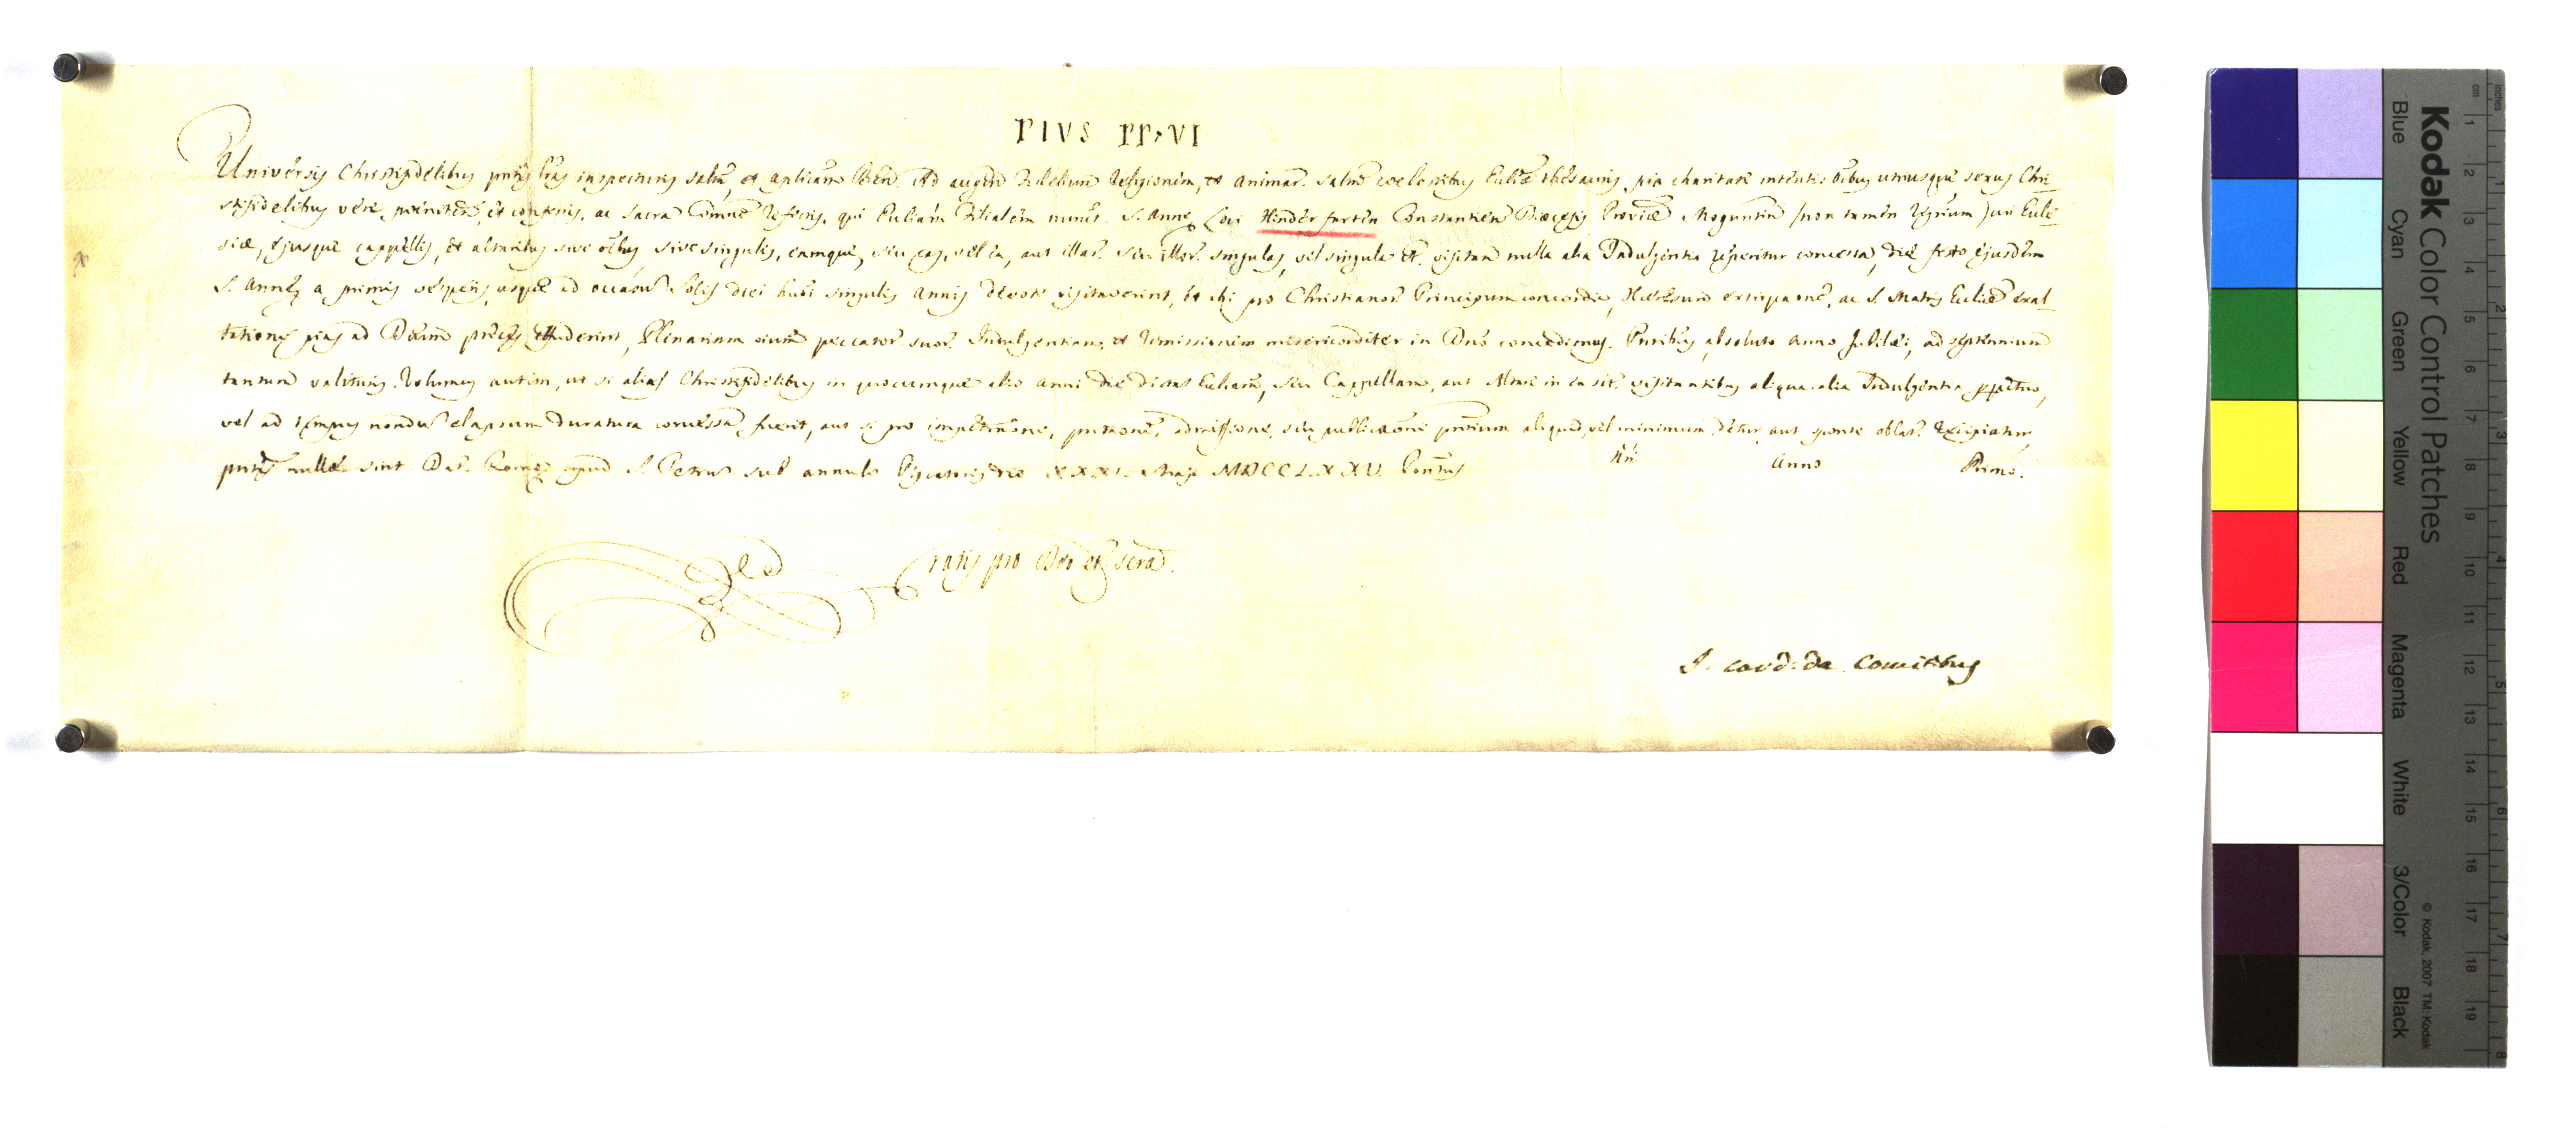 PIVS PP. VI
Universis Christifidelibus pntes lras inspecturis salut, et aplicam Bened. Ad augend fidelium religionem, et animar. salute coelestibus Ecclie thesauris pia charitate intenti oibus utriusque sexus Chri-
stifidelibus vere penitent, et confessis, ac sacra Comne refectis, qui Ecliam filialem S. Annae Loci Hinderfurten Constantien Dioecesis Provicae Moguntin /non tamen regrium/ cui Eccle-
siae, ejusque cappellis, et altaribus sive oibus sive singulis, eamque, seu eas, vel ea, aut illar. seu illor. singulas, vel singula et. visitan nulla alia Indulgentia reperitur concessa, die festo ejusdem
S. Annae a primis vesperis usque ad occasu Solis diei hui singulis annis devote visitaverint, et ibi pro Christianor Principum concordia, Haeresum extirpaone, ac S. Matris Ecclie exal-
tatione pias ad Deum preces effuderint, Plenariam oium peccator suor. Indulgentiam, et remissionem misericorditer in Dno concedimus. Pntibus absoluto anno Jubilaei, ad septennium
tantum valituris. Volumus autem, ut si alias Christifidelibus in quocumque alio anni die dictas Ecliam, seu Cappellam, aut Altare in ea sit. visitantibus aliqua alia Indulgentia ppetuo,
vel ad tempus nondu elapsum duratura concessa fuerit, aut si pro impetraone, pntaone, admissione, seu publicaone pntium aliquid, vel minimum detur, aut sponte oblat. recipiatur,
pntes nullae sint. Dat. Romae apud S. Petrum sub annulo Piscatoris die XXXI. Maji MDCCLXXV. Pontus Nri Anno Primo.
Gratis pro Deo et scra.
I. Card. de Comitibus
Kodak Color Control Patches
Blue Cyan Green Yellow Red Magenta White 3/Color Black
© Kodak, 2007 TM: Kodak
cm 1 2 3 4 5 6 7 8 9 10 11 12 13 14 15 16 17 18 19
inches 1 2 3 4 5 6 7 8